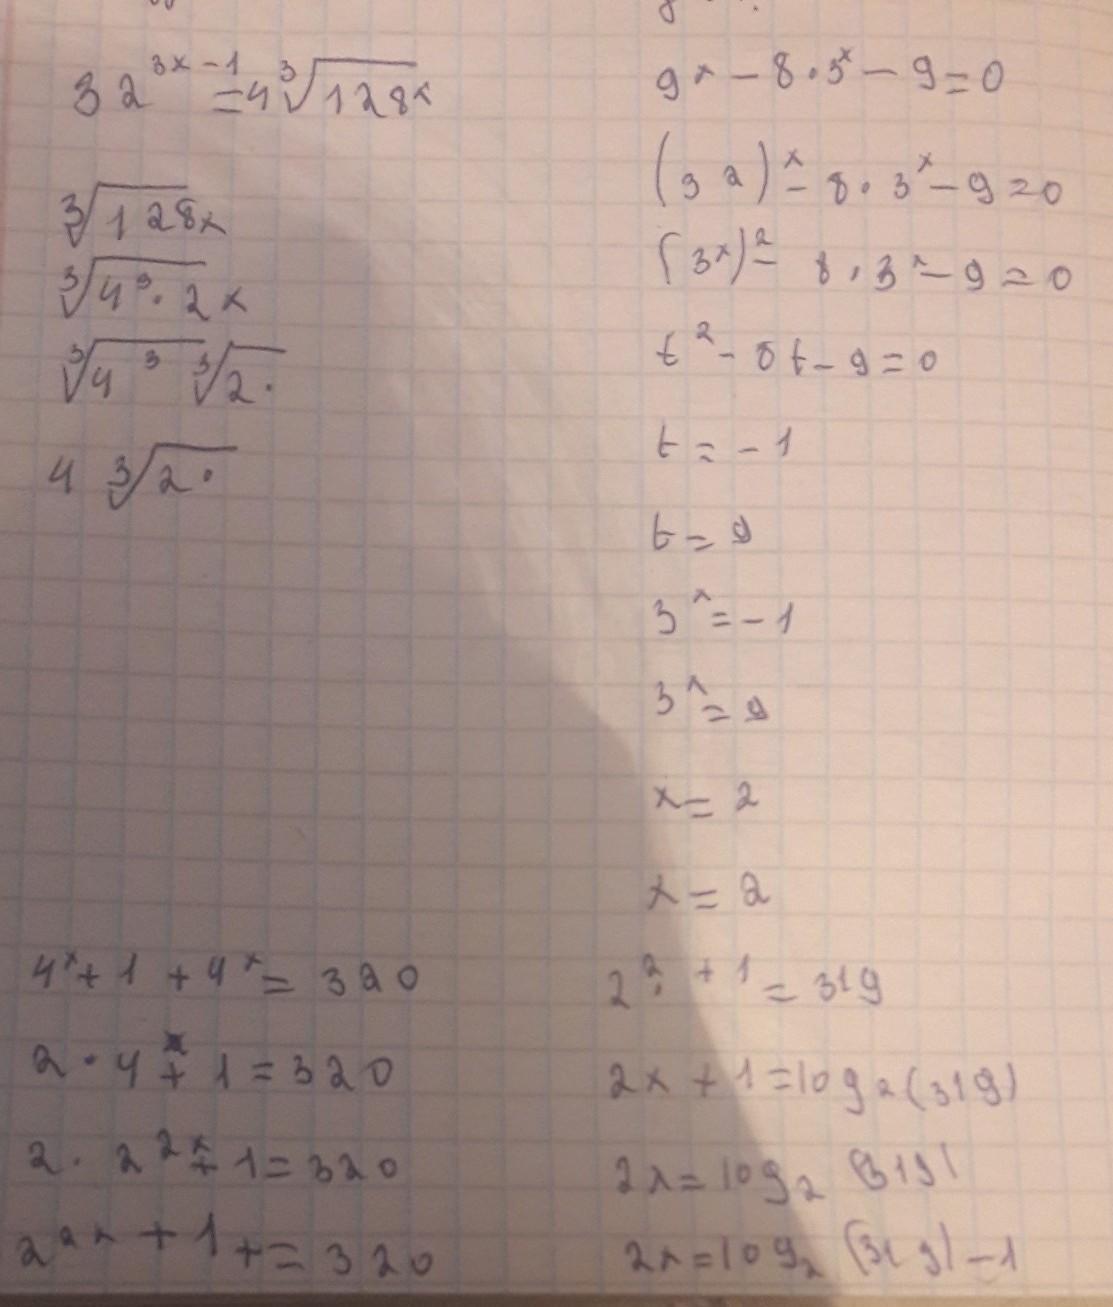 3 2^{3x-1} = 4 ∛128x
∛128x
∛4³·2x
∛4³ ∛2·
4 ∛2·
9^x - 8·3^x - 9 = 0
(3 2)^x - 8·3^x - 9 = 0
(3^x)² - 8·3^x - 9 = 0
t² - 8t - 9 = 0
t = -1
t = 9
3^x = -1
3^x = 9
x = 2
x = 2
4^x + 1 + 4^x = 320
2·4^x + 1 = 320
2·2^{2x} + 1 = 320
2^{2x} + 1 + = 320
2^{2·} + 1 = 319
2x + 1 = log₂(319)
2x = log₂(319)
2x = log₂(319) - 1